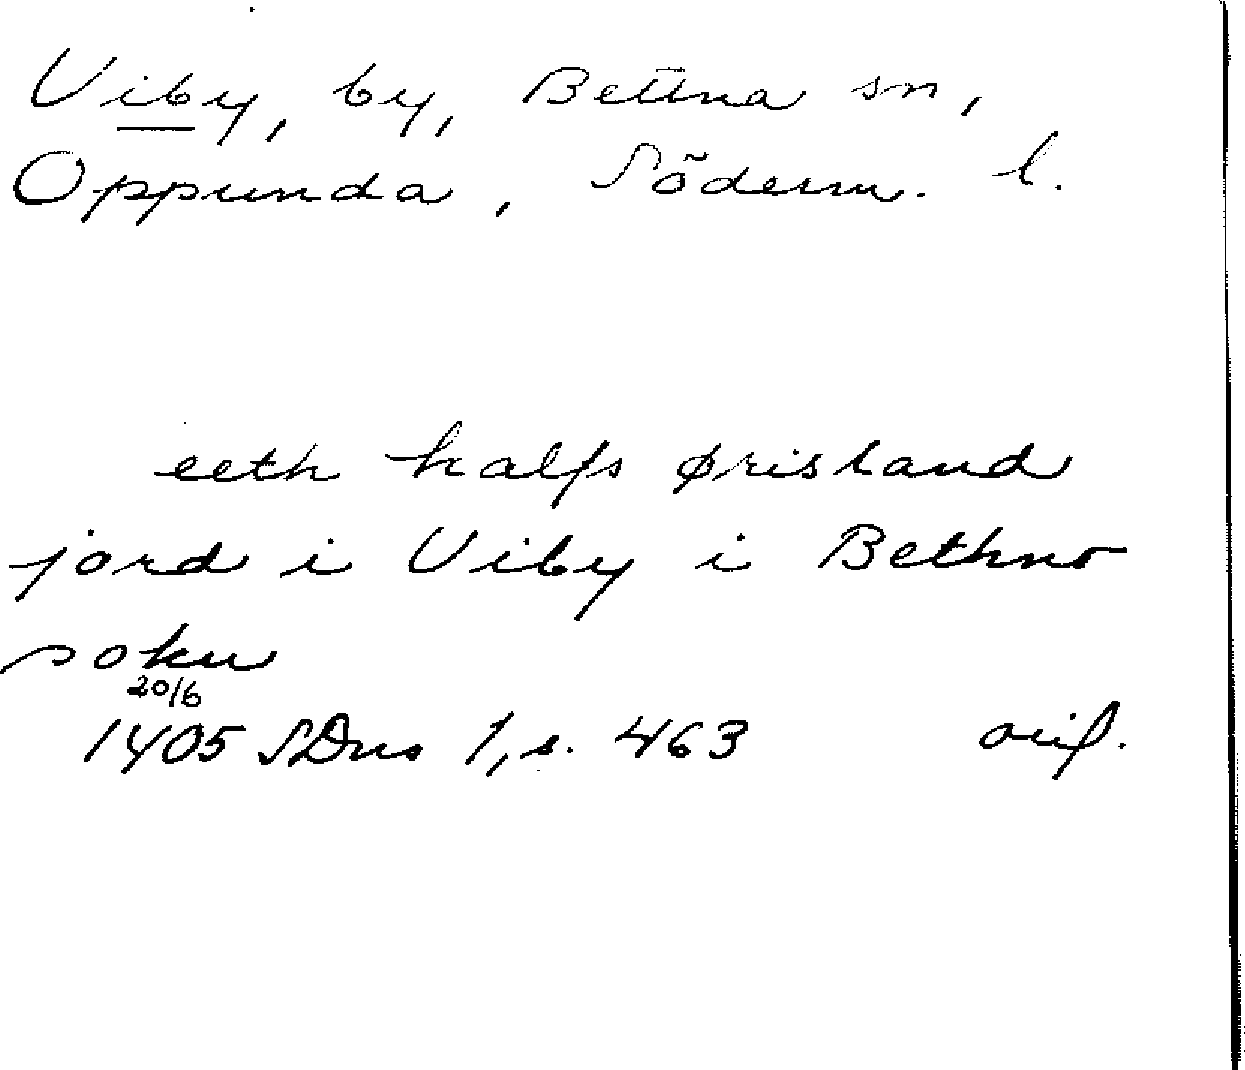 Viby, by, Bettna sn,
Oppunda, Söderm. l.
eeth halfs ørisland
jord i Viby i Bethno
sokn
20/6
1405 SDns 1, s. 463 orig.